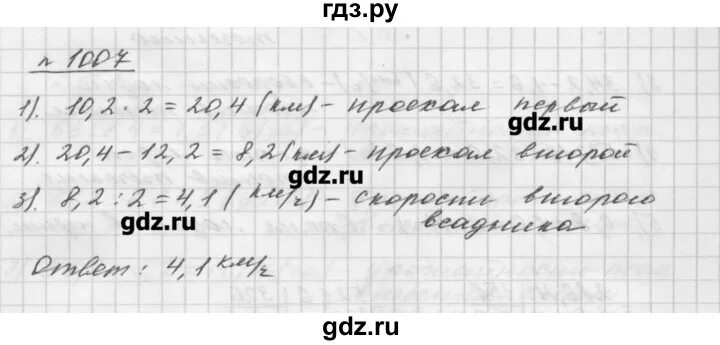 гдз.ру
n 1007
1). 10,2 · 2 = 20,4 (км) - проехал первый
gdz.ru
2). 20,4 - 12,2 = 8,2 (км) - проехал второй
3). 8,2 : 2 = 4,1 (км/г) - скорости второго
gdz.ru
всадника
gdz.ru
Ответ : 4,1 км/г
gdz.ru